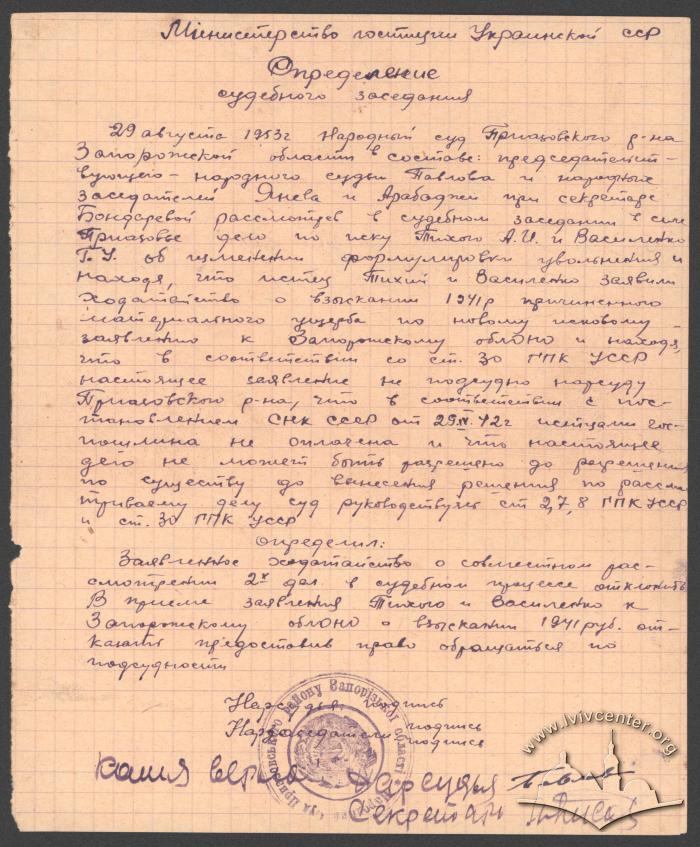 Министерство юстиции Украинской ССР
Определение
судебного заседания
29 августа 1953г Народный суд Приазовского р-на
Запорожской области в составе: председательст-
вующего - народного судьи Павлова и народные
заседателей Янева и Арабаджи при секретаре
Бондаревой рассмотрев в судебном заседании в селе
Приазовье дело по иску Тихого А.И. и Василенко
Г.У. об изменении формулировки увольнения и
находя, что истец Тихий и Василенко заявили
ходатайство о взыскании 1941р причиненного
материального ущерба по новому исковому
заявлению к Запорожскому облоно и находя,
что в соответствии со ст. 30 ГПК УССР
настоящее заявление не подсудно нарсуду
Приазовского р-на, что в соответствии с пос-
тановлением СНК СССР от 29 42г истцами гос-
пошлина не оплачена и что настоящее
дело не может быть разрешено до разрешения
по существу до вынесения решения по рассма
триваему делу суд руководствуясь ст 2,7,8 ГПК УССР
и ст. 30 ГПК УССР
определил:
Заявленное ходатайство о совместном рас-
смотрении 2х дел в судебном процессе отклонить
В приеме заявления Тихого и Василенко к
Запорожскому облоно о взыскании 1941 руб. от-
казать предоставив право обращаться по
подсудности
Нарсудья подпись
Нарзаседатели подпись
подпись
Копия верна. Нарсудья
Секретарь
району Запорізької області
www.lvivcenter.org